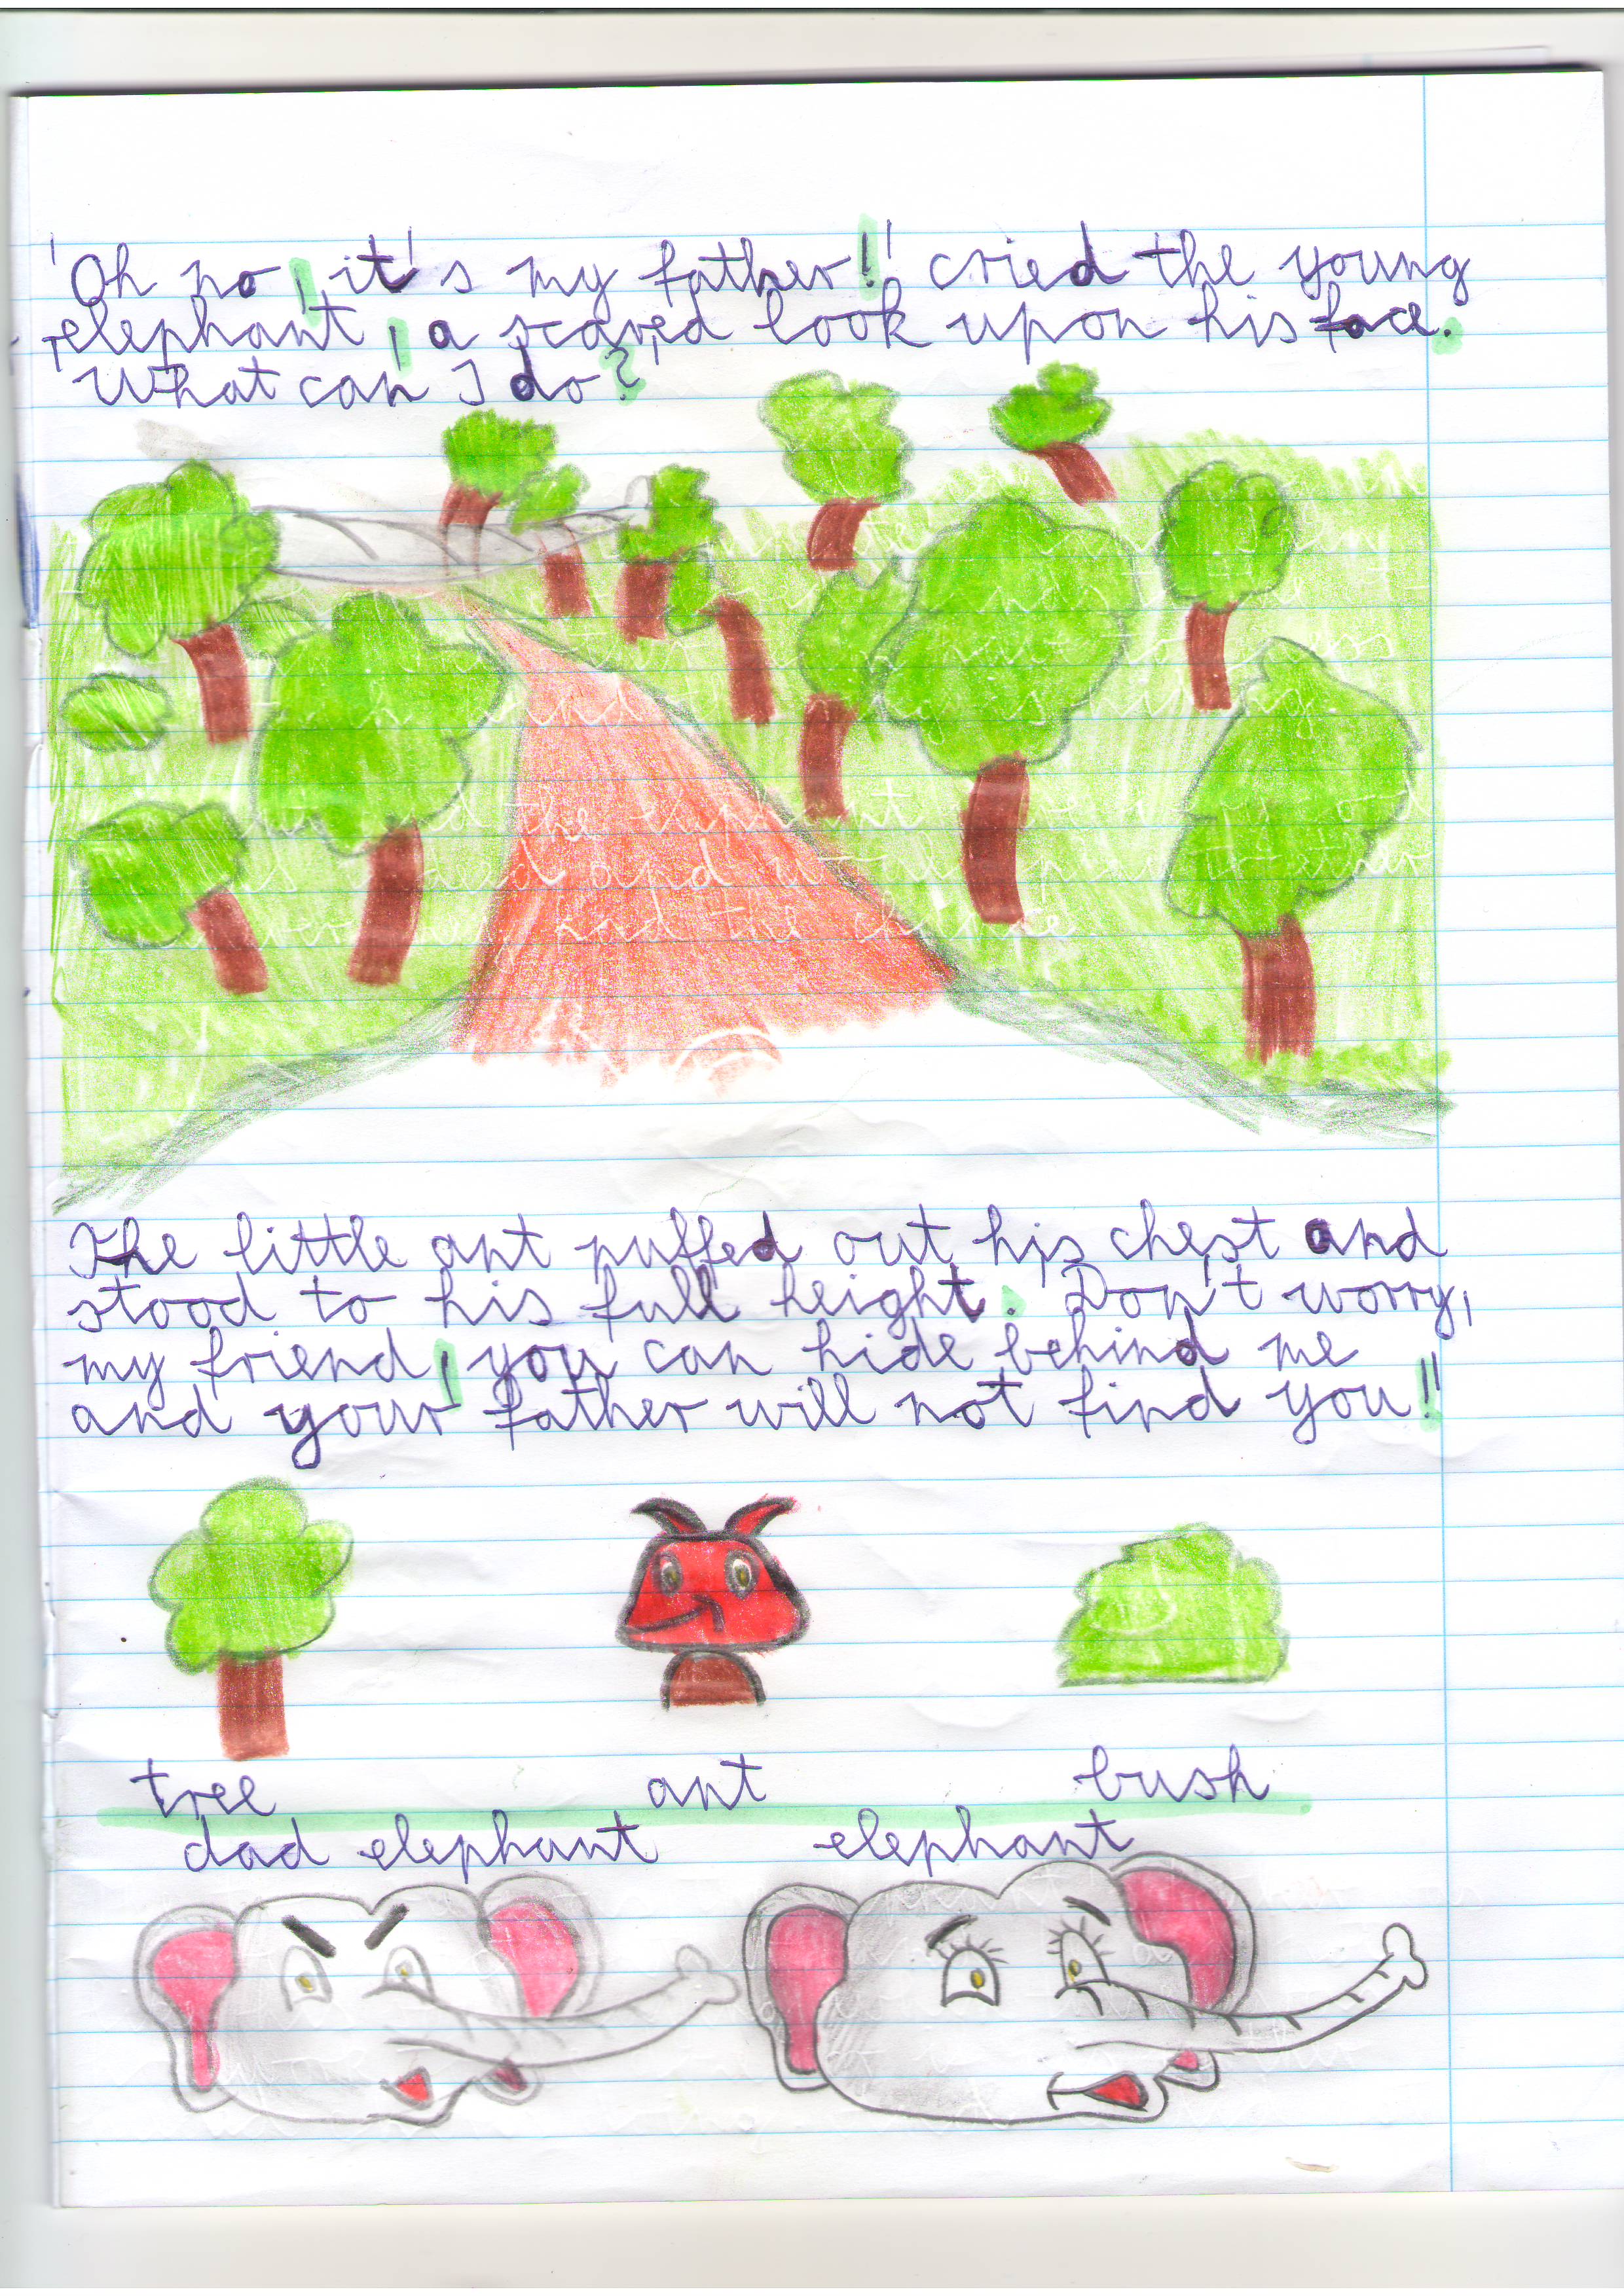 'Oh no, it's my father!' cried the young
elephant, a scared look upon his face.
'What can I do?'
The little ant puffed out his chest and
stood to his full height. 'Don't worry,
my friend, you can hide behind me
and your father will not find you!'
tree ant bush
dad elephant elephant